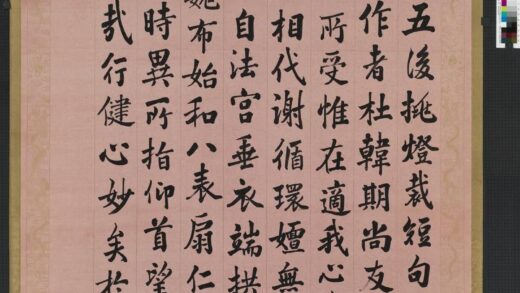 五後挑燈裁短句
作者杜韓期尚友
所受惟在適我心
相代謝循環嬗無
自法宮垂衣端拱
婉布始和八表扇仁
時異所指仰首望
哉行健心妙矣於